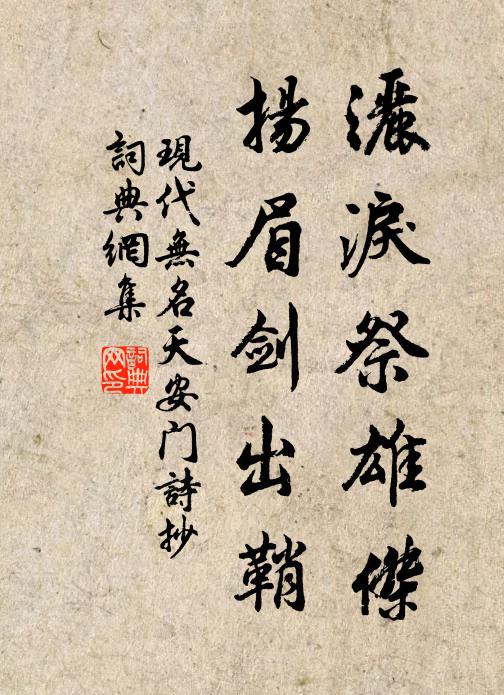 灑淚祭雄傑
揚眉剑出鞘
現代無名天安門詩抄
詞典網集
詞典网印